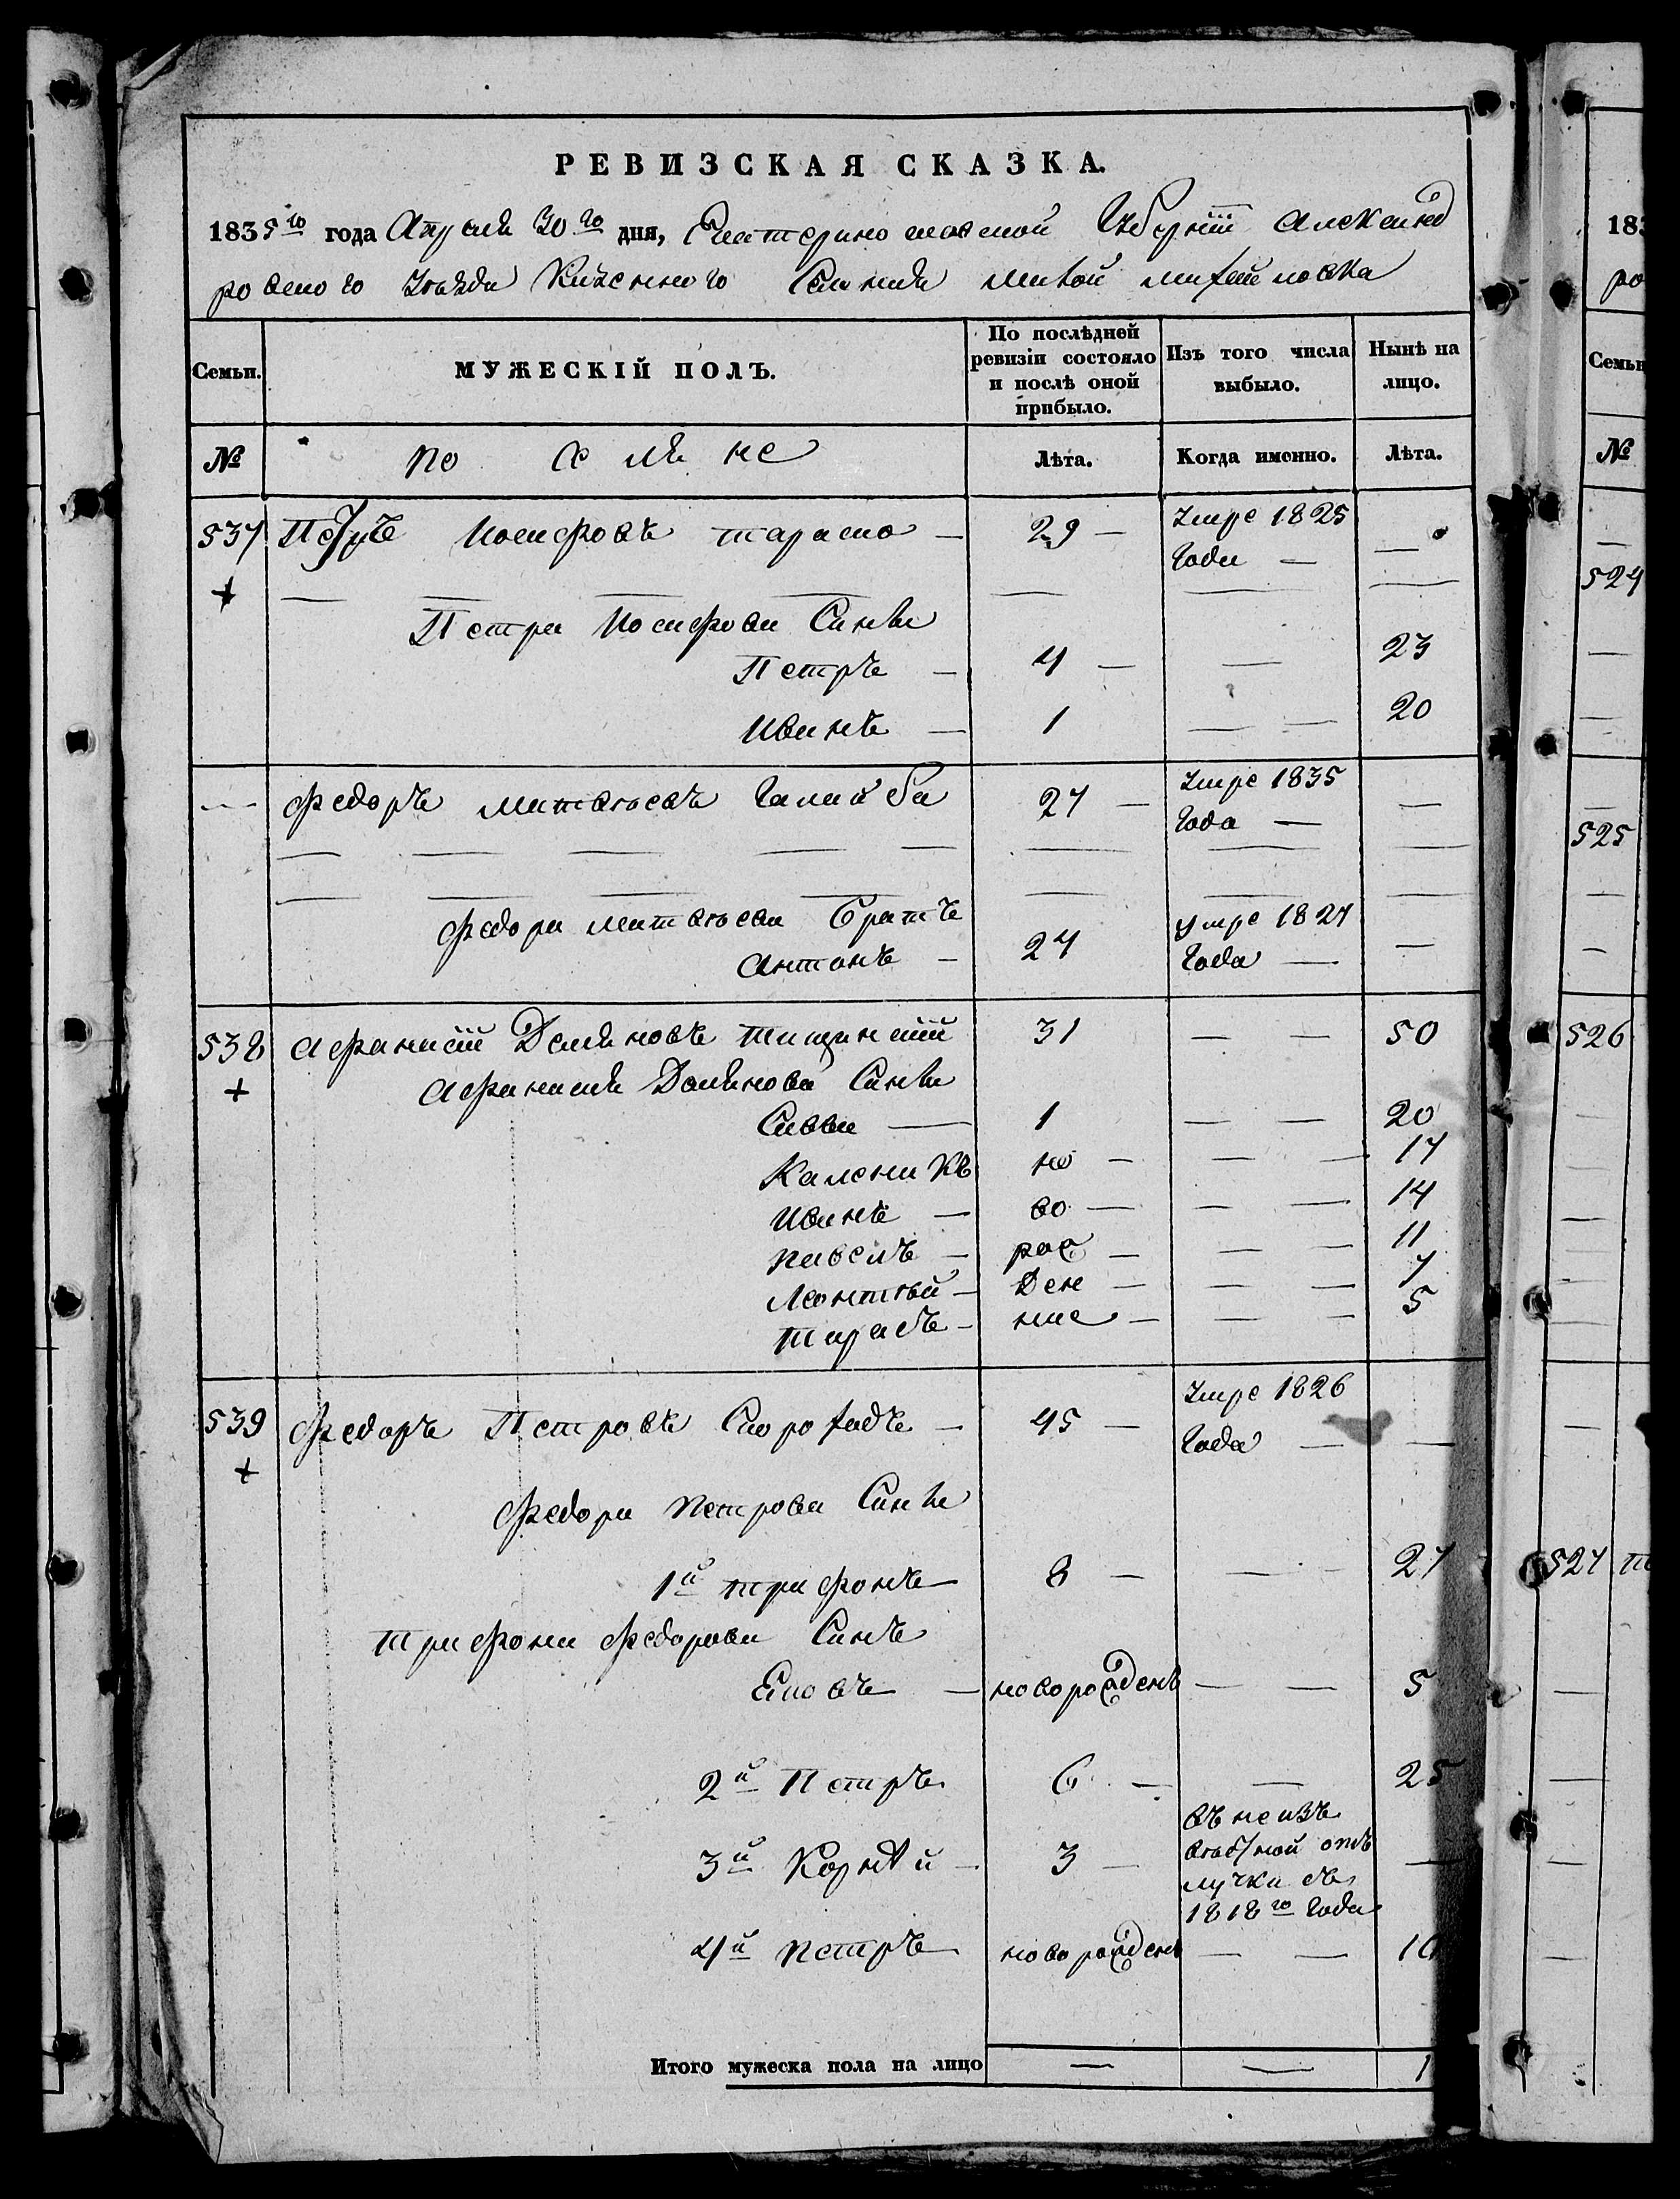 РЕВИЗСКАЯ СКАЗКА.
1835го года Апреля 30го дня, Екатеринославской Губерніи Александ
ровского Уезда Казенного Селенія Малой Михайловка
Семьи. МУЖЕСКІЙ ПОЛЪ. По послѣдней ревизіи состояло и послѣ оной прибыло. Изъ того числа выбыло. Нынѣ на лицо.
№ Лѣта. Когда именно. Лѣта.
537 Петръ Иосифовъ Тарано — 29 — Умре 1825
Года — —
+
Петра Иосифова Сыны
Петръ — 4 — — 23
Иванъ — 1 — — 20
Федоръ Матвѣевъ 27 — Умре 1835
Года — —
Федора Матвѣева Братъ
Антонъ — 24 Умре 1827
Года — —
538 Афанасій Демяновъ 31 — — 50
+ Афанасія Демянова Сыны
Савва — 1 — — 20
Каленикъ но — — — 17
Иванъ — во — — — 14
Павелъ — рож — — — 11
Леонтѣй — ден — — — 7
Тарасъ — ние — — — 5
539 Федоръ Петровъ — 45 — Умре 1826
Года — —
+
Федора Петрова Сыны
1й Трифонъ — 8 — — 27
Трифона Федорова Сынъ
— новорожденъ — — 5
2й Петръ 6 — — 25
3й Корнѣй — 3 — въ неизъ
вѣстной отъ
лучки съ
1818го Года —
4й Петръ новорожденъ — —
Итого мужеска пола на лицо — — 1
183
ро
Семьи
№
524
525
526
527